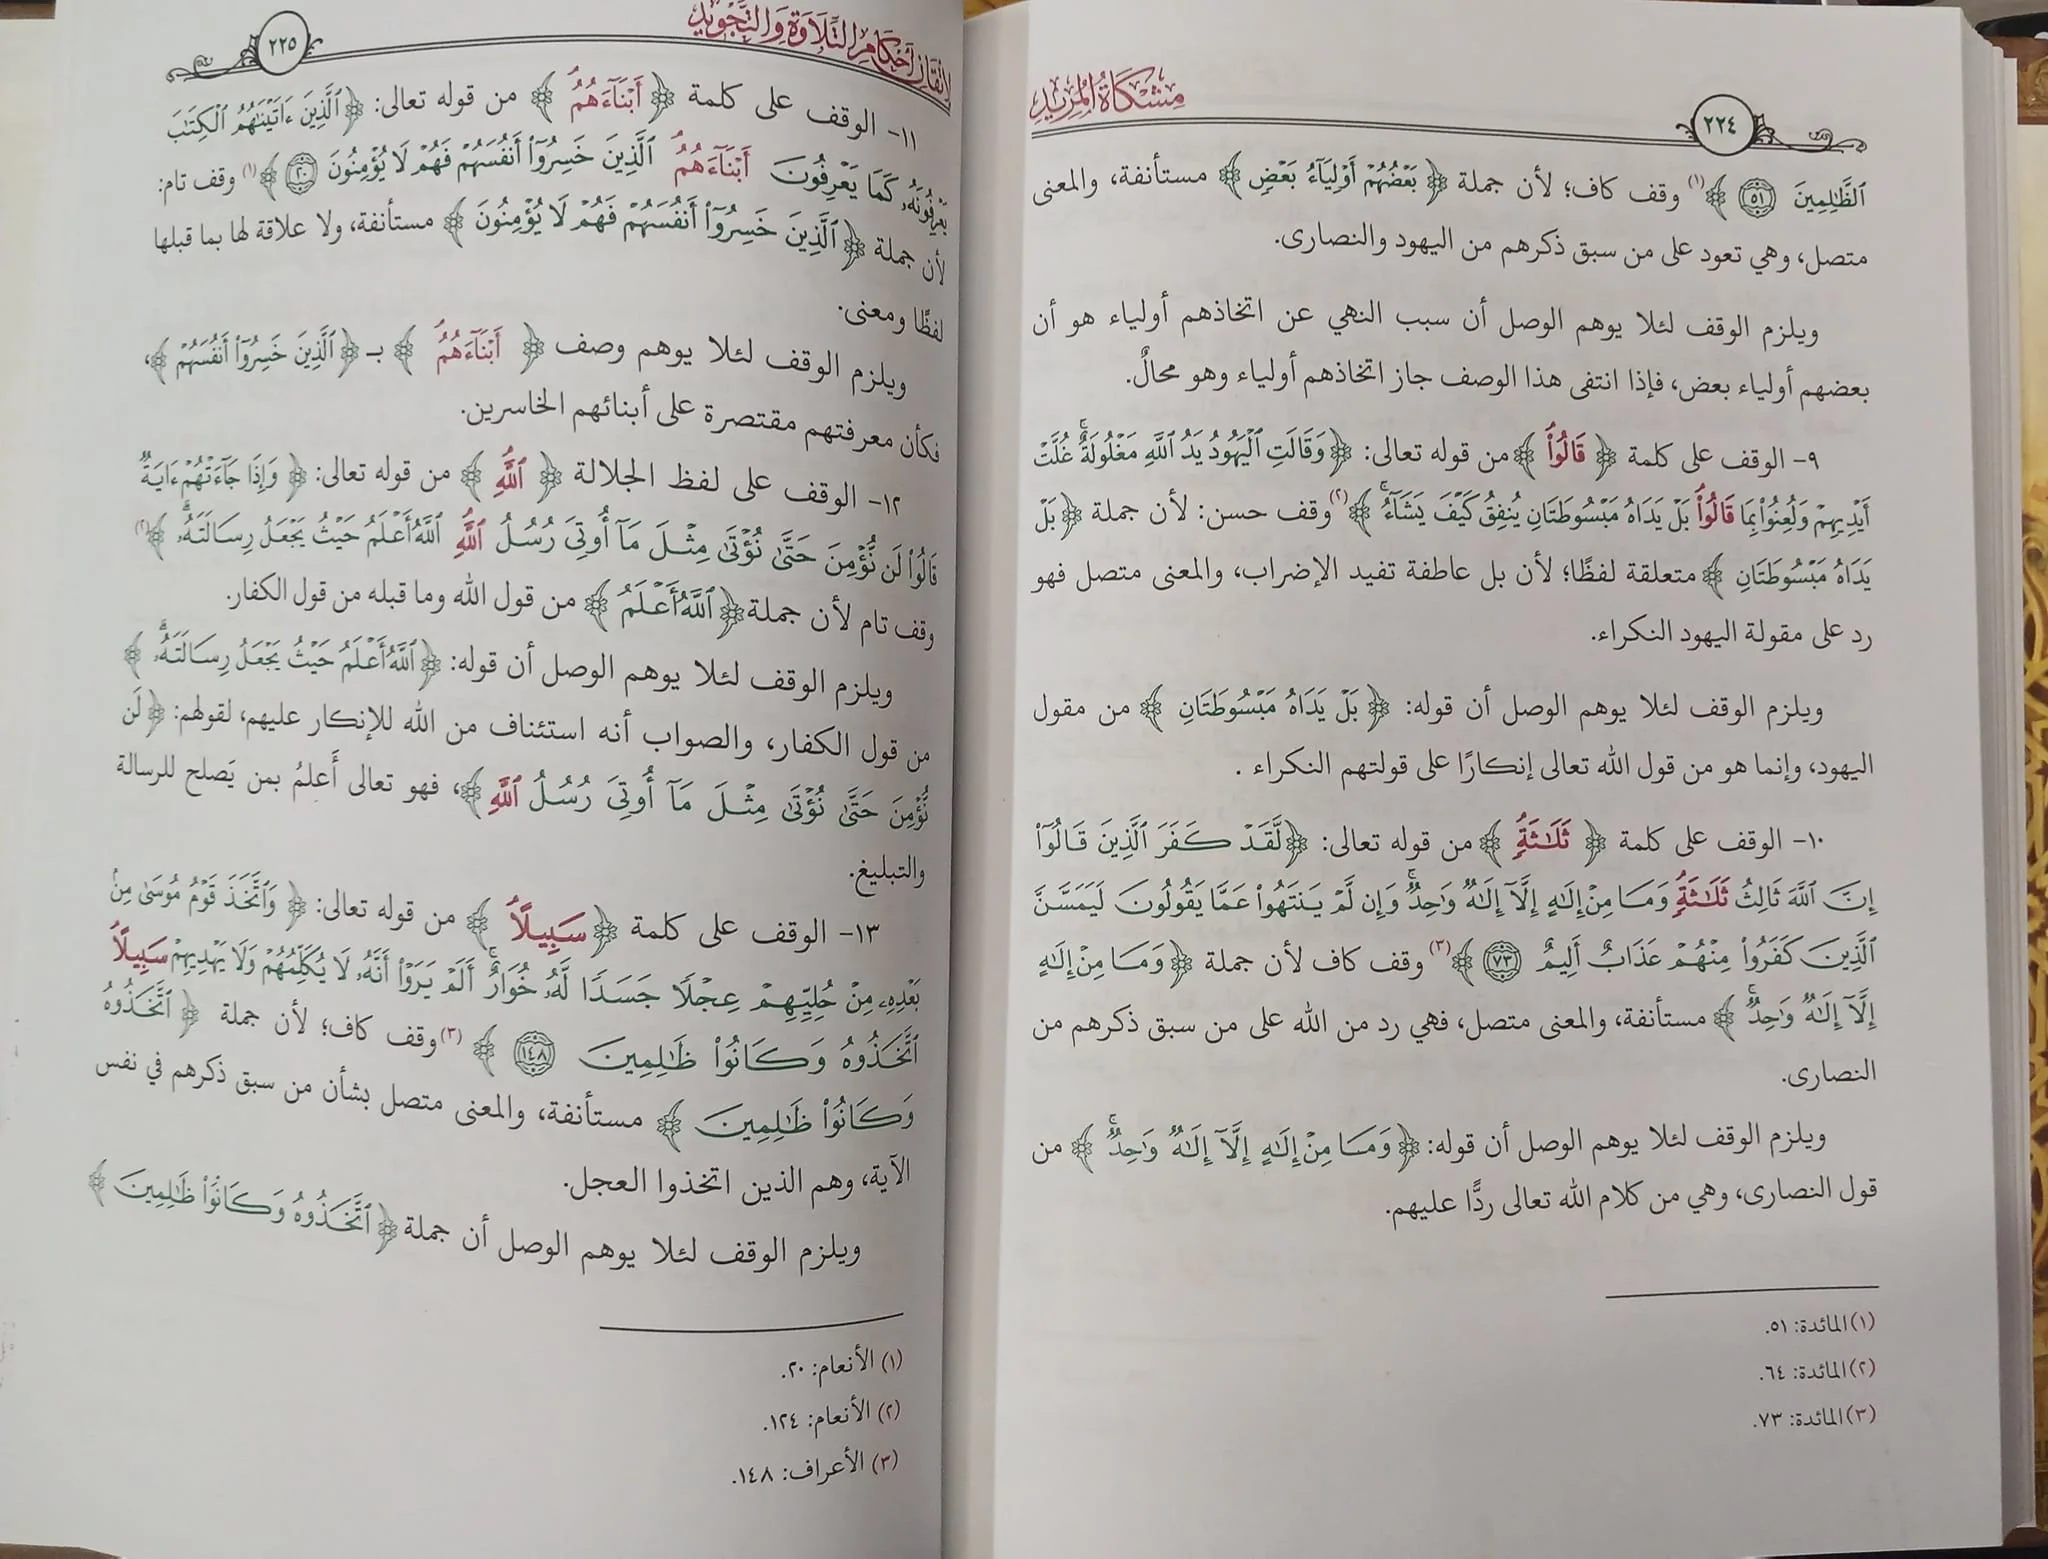 مِشْكَاةُ الْمُرِيدِ
٢٢٤
ٱلظَّٰلِمِينَ ۝٥١﴾(١) وقف كاف؛ لأن جملة ﴿بَعْضُهُمْ أَوْلِيَآءُ بَعْضٍ﴾ مستأنفة، والمعنى
متصل، وهي تعود على من سبق ذكرهم من اليهود والنصارى.
ويلزم الوقف لئلا يوهم الوصل أن سبب النهي عن اتخاذهم أولياء هو أن
بعضهم أولياء بعض، فإذا انتفى هذا الوصف جاز اتخاذهم أولياء وهو محالٌ.
٩- الوقف على كلمة ﴿قَالُواْۘ﴾ من قوله تعالى: ﴿وَقَالَتِ ٱلْيَهُودُ يَدُ ٱللَّهِ مَغْلُولَةٌۚ غُلَّتْ
أَيْدِيهِمْ وَلُعِنُواْ بِمَا قَالُواْۘ بَلْ يَدَاهُ مَبْسُوطَتَانِ يُنفِقُ كَيْفَ يَشَآءُۚ﴾(٢) وقف حسن: لأن جملة ﴿بَلْ
يَدَاهُ مَبْسُوطَتَانِ﴾ متعلقة لفظًا؛ لأن بل عاطفة تفيد الإضراب، والمعنى متصل فهو
رد على مقولة اليهود النكراء.
ويلزم الوقف لئلا يوهم الوصل أن قوله: ﴿بَلْ يَدَاهُ مَبْسُوطَتَانِ﴾ من مقول
اليهود، وإنما هو من قول الله تعالى إنكارًا على قولتهم النكراء .
١٠- الوقف على كلمة ﴿ثَلَٰثَةٍۘ﴾ من قوله تعالى: ﴿لَّقَدْ كَفَرَ ٱلَّذِينَ قَالُوٓاْ
إِنَّ ٱللَّهَ ثَالِثُ ثَلَٰثَةٍۘ وَمَا مِنْ إِلَٰهٍ إِلَّآ إِلَٰهٌ وَٰحِدٌۚ وَإِن لَّمْ يَنتَهُواْ عَمَّا يَقُولُونَ لَيَمَسَّنَّ
ٱلَّذِينَ كَفَرُواْ مِنْهُمْ عَذَابٌ أَلِيمٌ ۝٧٣﴾(٣) وقف كاف لأن جملة ﴿وَمَا مِنْ إِلَٰهٍ
إِلَّآ إِلَٰهٌ وَٰحِدٌۚ﴾ مستأنفة، والمعنى متصل، فهي رد من الله على من سبق ذكرهم من
النصارى.
ويلزم الوقف لئلا يوهم الوصل أن قوله: ﴿وَمَا مِنْ إِلَٰهٍ إِلَّآ إِلَٰهٌ وَٰحِدٌۚ﴾ من
قول النصارى، وهي من كلام الله تعالى ردًّا عليهم.
(١) المائدة: ٥١.
(٢) المائدة: ٦٤.
(٣) المائدة: ٧٣.
لإِتْقَانِ أَحْكَامِ التِّلَاوَةِ وَالتَّجْوِيدِ
٢٢٥
١١- الوقف على كلمة ﴿أَبْنَآءَهُمُۘ﴾ من قوله تعالى: ﴿ٱلَّذِينَ ءَاتَيْنَٰهُمُ ٱلْكِتَٰبَ
يَعْرِفُونَهُۥ كَمَا يَعْرِفُونَ أَبْنَآءَهُمُۘ ٱلَّذِينَ خَسِرُوٓاْ أَنفُسَهُمْ فَهُمْ لَا يُؤْمِنُونَ ۝٢٠﴾(١) وقف تام:
لأن جملة ﴿ٱلَّذِينَ خَسِرُوٓاْ أَنفُسَهُمْ فَهُمْ لَا يُؤْمِنُونَ﴾ مستأنفة، ولا علاقة لها بما قبلها
لفظًا ومعنى.
ويلزم الوقف لئلا يوهم وصف ﴿أَبْنَآءَهُمُۘ﴾ بـ ﴿ٱلَّذِينَ خَسِرُوٓاْ أَنفُسَهُمْ﴾،
فكأن معرفتهم مقتصرة على أبنائهم الخاسرين.
١٢- الوقف على لفظ الجلالة ﴿ٱللَّهِۘ﴾ من قوله تعالى: ﴿وَإِذَا جَآءَتْهُمْ ءَايَةٌ
قَالُواْ لَن نُّؤْمِنَ حَتَّىٰ نُؤْتَىٰ مِثْلَ مَآ أُوتِىَ رُسُلُ ٱللَّهِۘ ٱللَّهُ أَعْلَمُ حَيْثُ يَجْعَلُ رِسَالَتَهُۥۗ﴾(٢)
وقف تام لأن جملة ﴿ٱللَّهُ أَعْلَمُ﴾ من قول الله وما قبله من قول الكفار.
ويلزم الوقف لئلا يوهم الوصل أن قوله: ﴿ٱللَّهُ أَعْلَمُ حَيْثُ يَجْعَلُ رِسَالَتَهُۥۗ﴾
من قول الكفار، والصواب أنه استئناف من الله للإنكار عليهم، لقولهم: ﴿لَن
نُّؤْمِنَ حَتَّىٰ نُؤْتَىٰ مِثْلَ مَآ أُوتِىَ رُسُلُ ٱللَّهِۘ﴾، فهو تعالى أَعلمُ بمن يَصلح للرسالة
والتبليغ.
١٣- الوقف على كلمة ﴿سَبِيلًاۘ﴾ من قوله تعالى: ﴿وَٱتَّخَذَ قَوْمُ مُوسَىٰ مِنۢ
بَعْدِهِۦ مِنْ حُلِيِّهِمْ عِجْلًا جَسَدًا لَّهُۥ خُوَارٌۚ أَلَمْ يَرَوْاْ أَنَّهُۥ لَا يُكَلِّمُهُمْ وَلَا يَهْدِيهِمْ سَبِيلًاۘ
ٱتَّخَذُوهُ وَكَانُواْ ظَٰلِمِينَ ۝١٤٨﴾(٣) وقف كاف؛ لأن جملة ﴿ٱتَّخَذُوهُ
وَكَانُواْ ظَٰلِمِينَ﴾ مستأنفة، والمعنى متصل بشأن من سبق ذكرهم في نفس
الآية، وهم الذين اتخذوا العجل.
ويلزم الوقف لئلا يوهم الوصل أن جملة ﴿ٱتَّخَذُوهُ وَكَانُواْ ظَٰلِمِينَ﴾
(١) الأنعام: ٢٠.
(٢) الأنعام: ١٢٤.
(٣) الأعراف: ١٤٨.